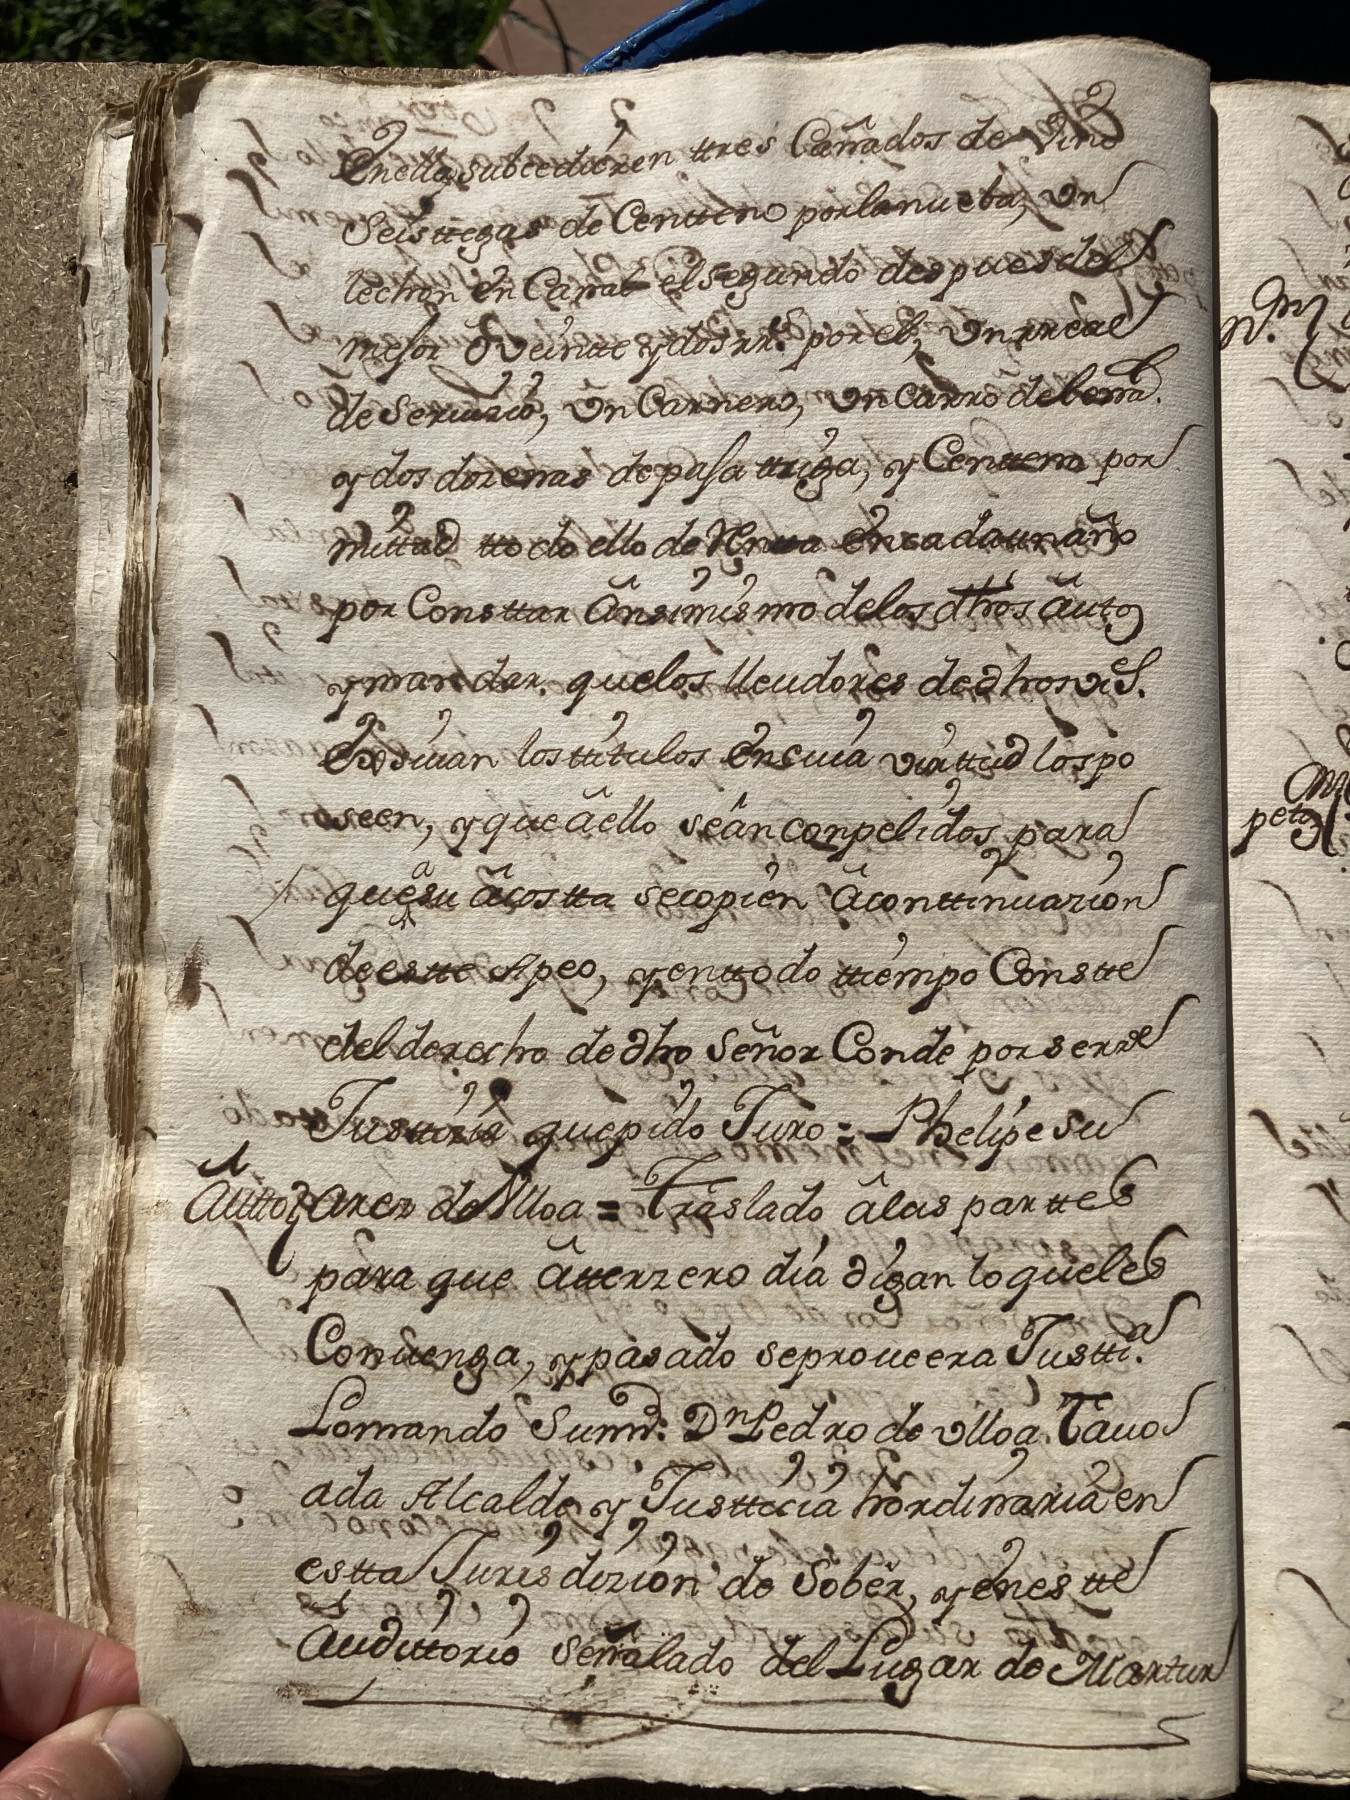 enella subcedieren ttres Cañados de Vino
Seis ttegas de Centteno por la nueba, Un
lechon en Canal el segundo despues del
mejor ô veintte y dos rrs. por el, Un rreal
de seruizio, Un Carnero, Un carro de
y dos dozenas de paja ttriga, y Centteno por
mittad ttodo ello de Rentta en cada un año
por Consttar ânsimismo de los dhos âutos
y mandar que los lleudores de dhos vs.
Exsiuan los titulos en cuia virttud los po
seen, y que â ello seân conpelidos para
que â su âcostta se copien âconttinuazion
de estte Apeo, y en ttodo ttiempo Constte
del derecho de dho Señor Conde por ser de
Justtizia que pido Juro = Phelipe Su
Âutto
arez de Ulloa = Traslado âlas parttes
para que âtterzero dia digan lo que les
Conuenga, y pasado se prouera Justti.a
Lo mando Su md. Dn Pedro de Ulloa Tauo
ada Alcalde y Justtecia hordinaria en
estta Jurisdizion de Sober, y en estte
audittorio señalado del Lugar de Martin